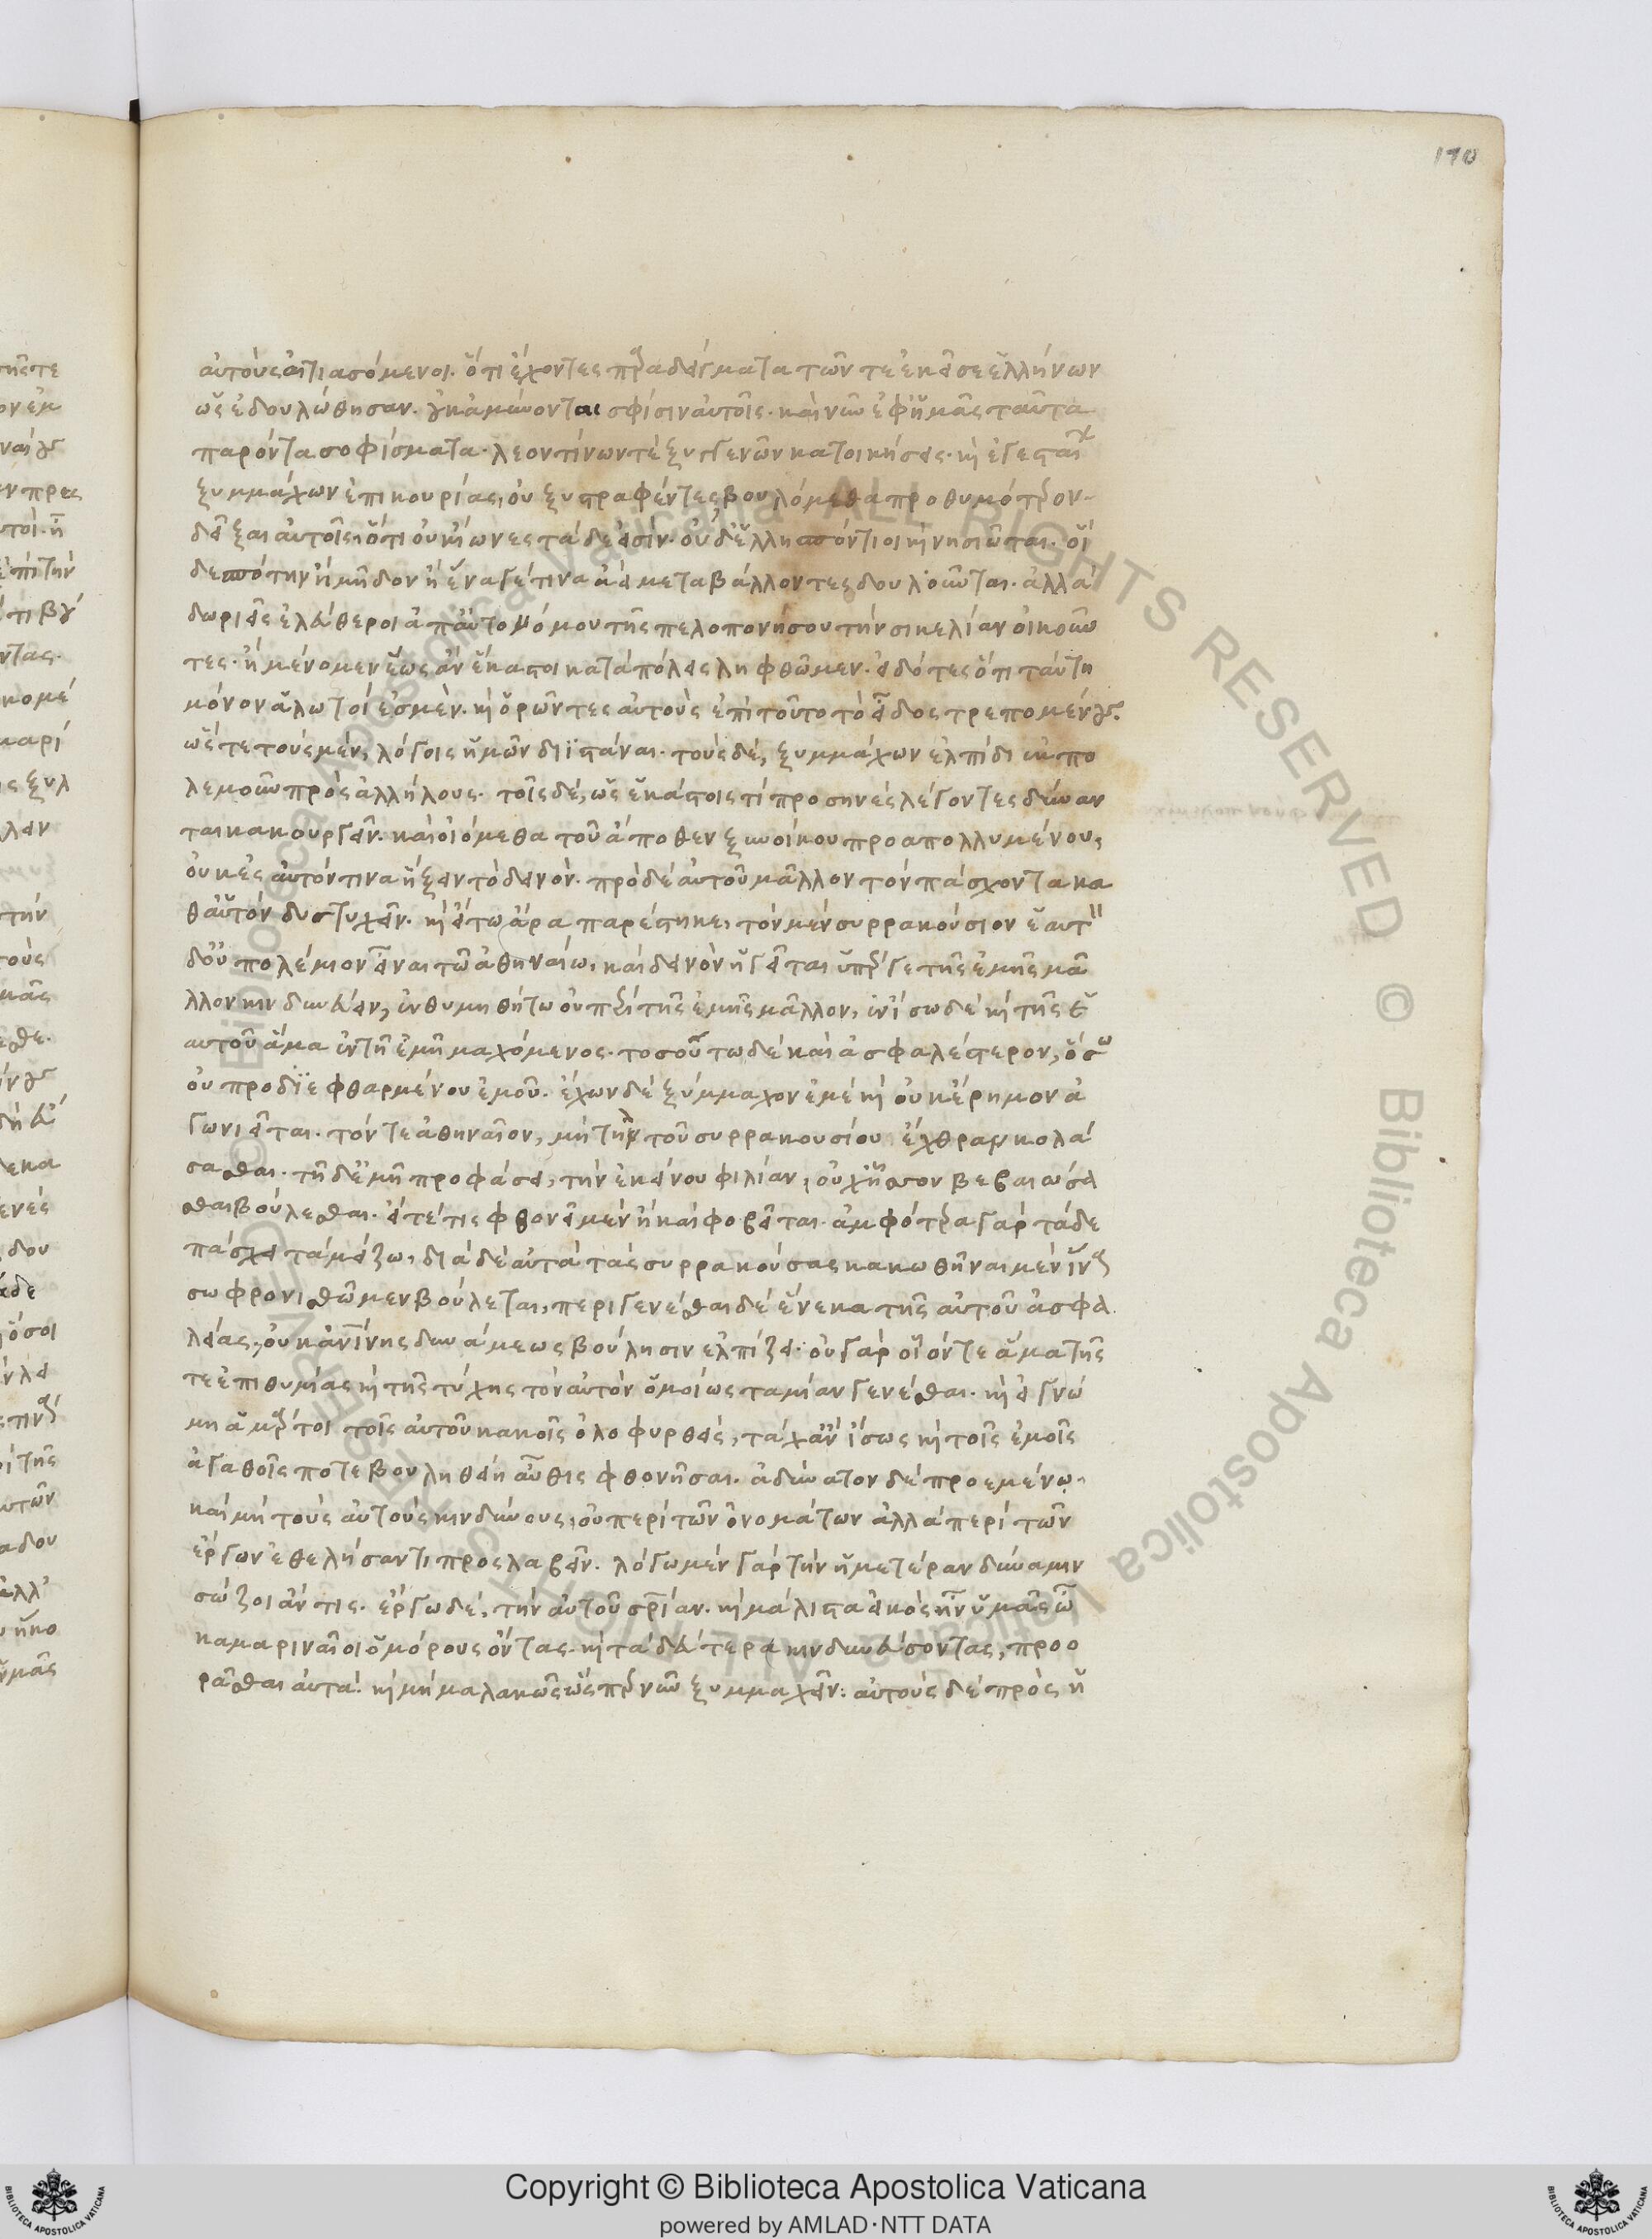 170
αὐτοὺς αἰτιασόμενοι. ὅτι ἔχοντες παραδείγματα τῶν τε ἐκεῖσε ἑλλήνων
ὡς ἐδουλώθησαν. οὐκ ἀμύνονται σφίσιν αὐτοῖς. καὶ νῦν ἐφ' ἡμᾶς ταῦτα
παρόντα σοφίσματα. λεοντίνων τὲ ξυγγενῶν κατοικήσεις. καὶ ἐγεσταίων
ξυμμάχων ἐπικουρίας, οὐ ξυστραφέντες βουλόμεθα προθυμότερον
δεῖξαι αὐτοῖς, ὅτι οὐκ ἴωνες τάδε εἰσίν. οὐδ' ἑλλησπόντιοι καὶ νησιῶται. οἳ
δεσπότην ἢ μῆδον ἢ ἕνα γέ τινα ἀεὶ μεταβάλλοντες δουλοῦνται. ἀλλὰ
δωριεῖς ἐλεύθεροι ἀπ' αὐτονόμου τῆς πελοπονήσου τὴν σικελίαν οἰκοῦν
τες. ἢ μένομεν ἕως ἂν ἕκαστοι κατὰ πόλεις ληφθῶμεν. εἰδότες ὅτι ταύτη
μόνον ἁλωτοί ἐσμὲν. καὶ ὁρῶντες αὐτοὺς ἐπὶ τοῦτο τὸ εἶδος τρεπομένους.
ὥστε τοὺς μὲν, λόγοις ἡμῶν διϊστάναι. τοὺς δὲ, ξυμμάχων ἐλπίδι ἐκπο
λεμοῦν πρὸς ἀλλήλους. τοῖς δὲ, ὡς ἑκάστοις τί προσηνὲς λέγοντες δύναν
ται κακουργεῖν. καὶ οἰόμεθα τοῦ ἄποθεν ξυνοίκου προαπολλυμένου,
οὐκ ἐς αὐτόν τινα ἥξειν τὸ δεινὸν. πρὸ δὲ αὐτοῦ μᾶλλον τὸν πάσχοντα κα
θ' αὑτὸν δυστυχεῖν. καὶ εἴ τω ἄρα παρέστηκε, τὸν μὲν συρρακούσιον ἑαυτῶ
δ' οὒ πολέμιον εἶναι τῶ ἀθηναίω, καὶ δεινὸν ἡγεῖται ὑπέρ γε τῆς ἐμῆς μᾶ
λλον κινδυνεύειν, ἐνθυμηθήτω οὐ περὶ τῆς ἐμῆς μᾶλλον, ἐν ἴσω δὲ καὶ τῆς ἑ
αυτοῦ ἅμα ἐν τῆ ἐμῆ μαχόμενος. τοσούτω δὲ καὶ ἀσφαλέστερον, ὅσω
οὐ προδιϊεφθαρμένου ἐμοῦ. ἔχων δὲ ξύμμαχον ἐμὲ καὶ οὐκ ἔρημον ἀ
γωνιεῖται. τόν τε ἀθηναῖον, μὴ τὴν τοῦ συρρακουσίου ἔχθραν κολά
σασθαι. τῆ δ' ἐμῆ προφάσει, τὴν ἐκείνου φιλίαν, οὐχ ἧσσον βεβαιώσα
σθαι βούλεσθαι. εἴ τέ τις φθονεῖ μὲν ἢ καὶ φοβεῖται. ἀμφότερα γὰρ τάδε
πάσχει τὰ μείζω, διὰ δὲ αὐτὰ τὰς συρρακούσας κακωθῆναι μὲν ἵνα
σωφρονισθῶμεν βούλεται, περιγενέσθαι δὲ ἕνεκα τῆς αὑτοῦ ἀσφα
λείας, οὐκ ἀνθρωπίνης δυνάμεως βούλησιν ἐλπίζει. οὐ γὰρ οἷόν τε ἅμα τῆς
τε ἐπιθυμίας καὶ τῆς τύχης τὸν αὐτὸν ὁμοίως ταμίαν γενέσθαι. καὶ εἰ γνώ
μη ἁμάρτοι τοῖς αὐτοῦ κακοῖς ὀλοφυρθεὶς, τάχ' ἂν ἴσως καὶ τοῖς ἐμοῖς
ἀγαθοῖς ποτε βουληθείη αὖθις φθονῆσαι. ἀδύνατον δὲ προεμένω.
καὶ μὴ τοὺς αὐτοὺς κινδύνους, οὐ περὶ τῶν ὀνομάτων ἀλλὰ περὶ τῶν
ἔργων ἐθελήσαντι προσλαβεῖν. λόγω μὲν γὰρ τὴν ἡμετέραν δύναμιν
σώζοι ἄν τις. ἔργω δὲ, τὴν αὑτοῦ σωτηρίαν. καὶ μάλιστα εἰκὸς ἦν ὑμᾶς ὦ
καμαριναῖοι ὁμόρους ὄντας. καὶ τὰ δεύτερα κινδυνεύσοντας, προο
ρᾶσθαι αὐτὰ. καὶ μὴ μαλακῶς ὥσπερ νῦν ξυμμαχεῖν. αὐτοὺς δὲ πρὸς ἡ
© Biblioteca Apostolica Vaticana ALL RIGHTS RESERVED © Biblioteca Apostolica Vaticana ALL RIGHTS RESERVED
Copyright © Biblioteca Apostolica Vaticana
powered by AMLAD·NTT DATA
BIBLIOTECA APOSTOLICA VATICANA
BIBLIOTECA APOSTOLICA VATICANA